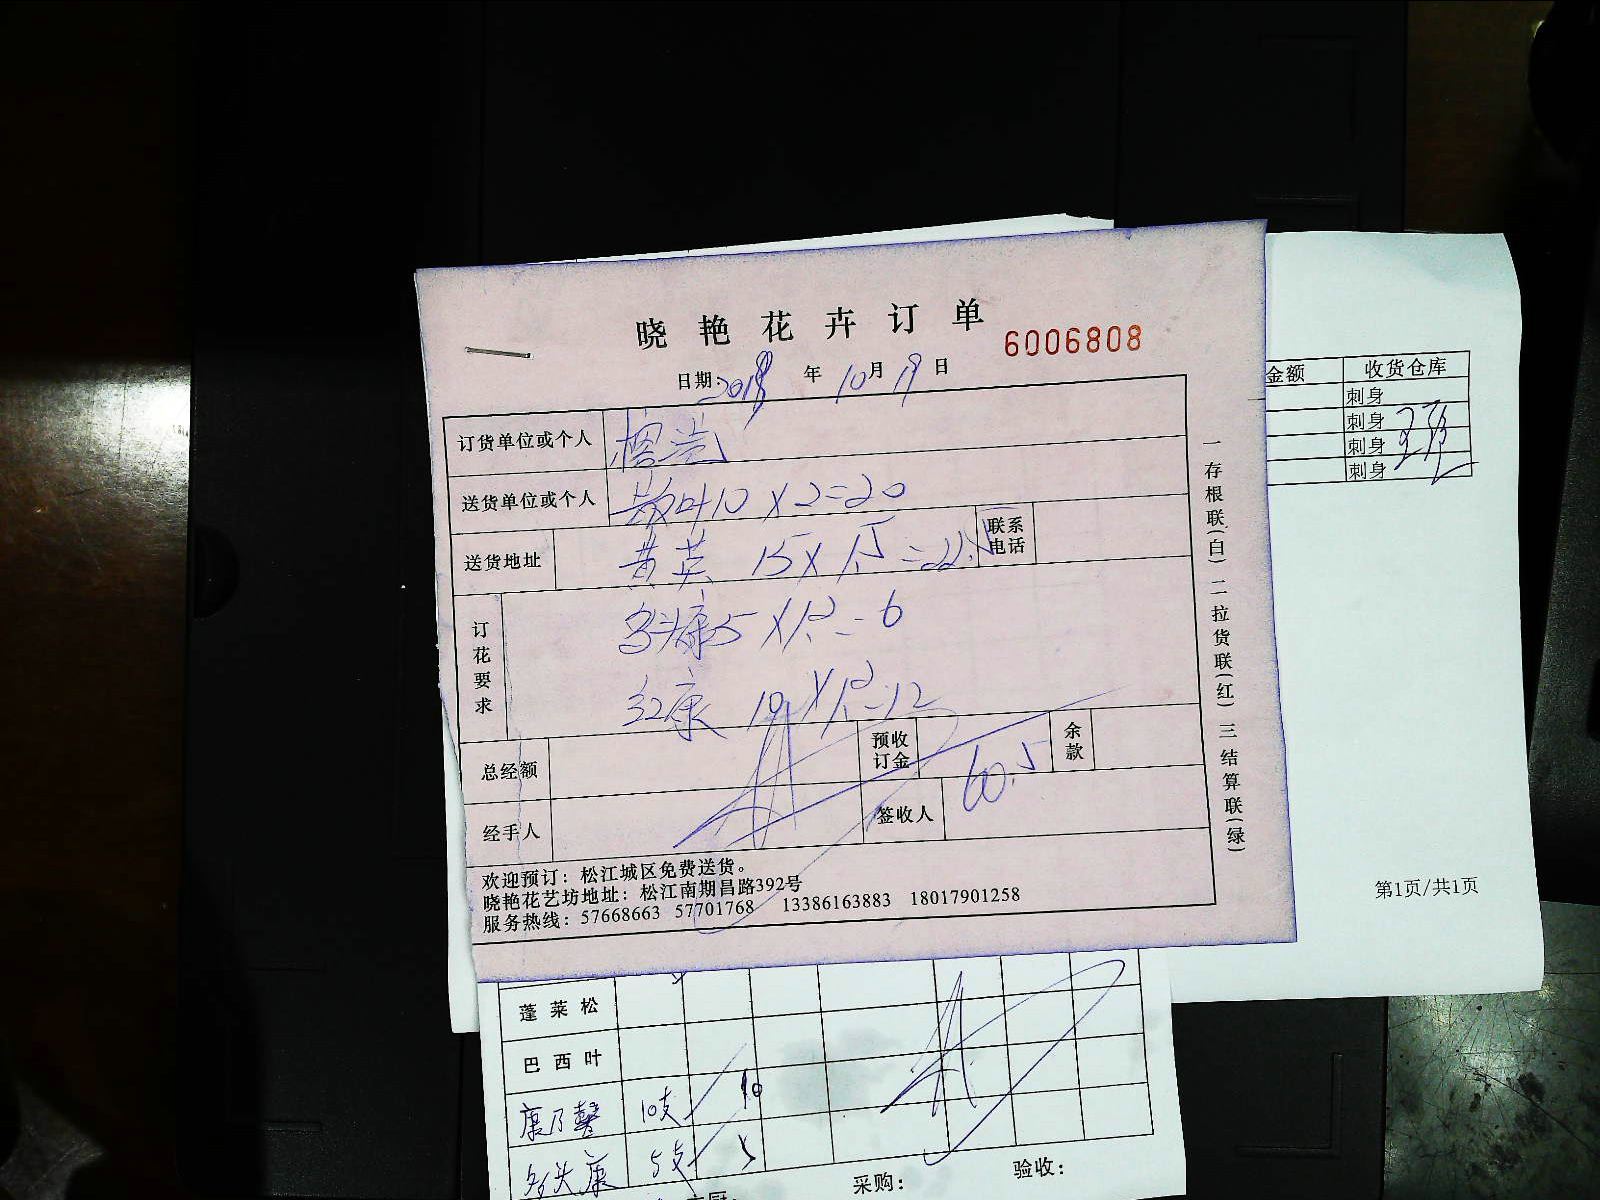 晓艳花卉订单
6006808
日期: 2018 年 10 月 19 日
订货单位或个人
送货单位或个人 散叶10 X 2=20
送货地址 黄英 15 X 1.5 =22.5 联系电话
订花要求
多头康5 X 1.2 = 6
红康 10 X 1.2=12
总经额 预收订金 60.5 余款
经手人 签收人
欢迎预订：松江城区免费送货。
晓艳花艺坊地址：松江南期昌路392号
服务热线：57668663 57701768 13386163883 18017901258
一存根联(白) 二拉货联(红) 三结算联(绿)
金额 收货仓库
刺身
刺身
刺身
刺身
第1页/共1页
蓬莱松
巴西叶
康乃馨 10支 10
多头康 5支 5
采购： 验收：